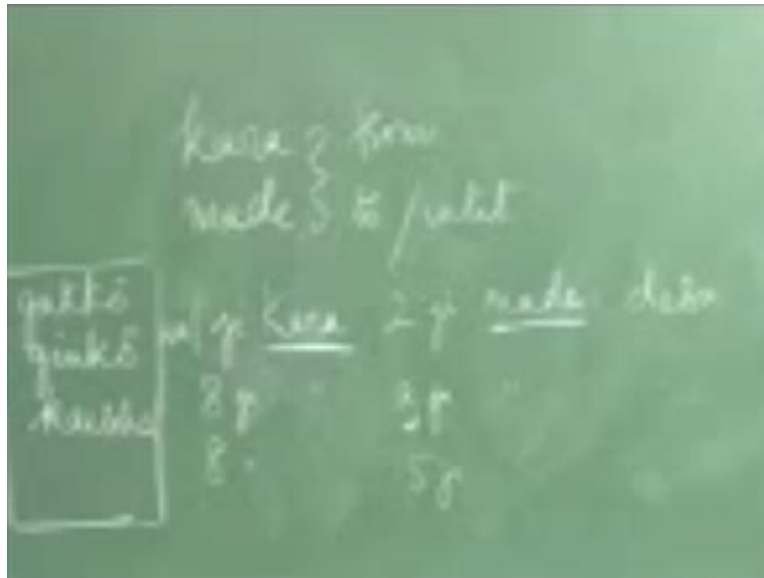 kara } from
made } to / until
gakkō
ginkō wa / ji kara 2 ji made desu
kaisha 8 ji " 3 ji "
8 " 5 ji